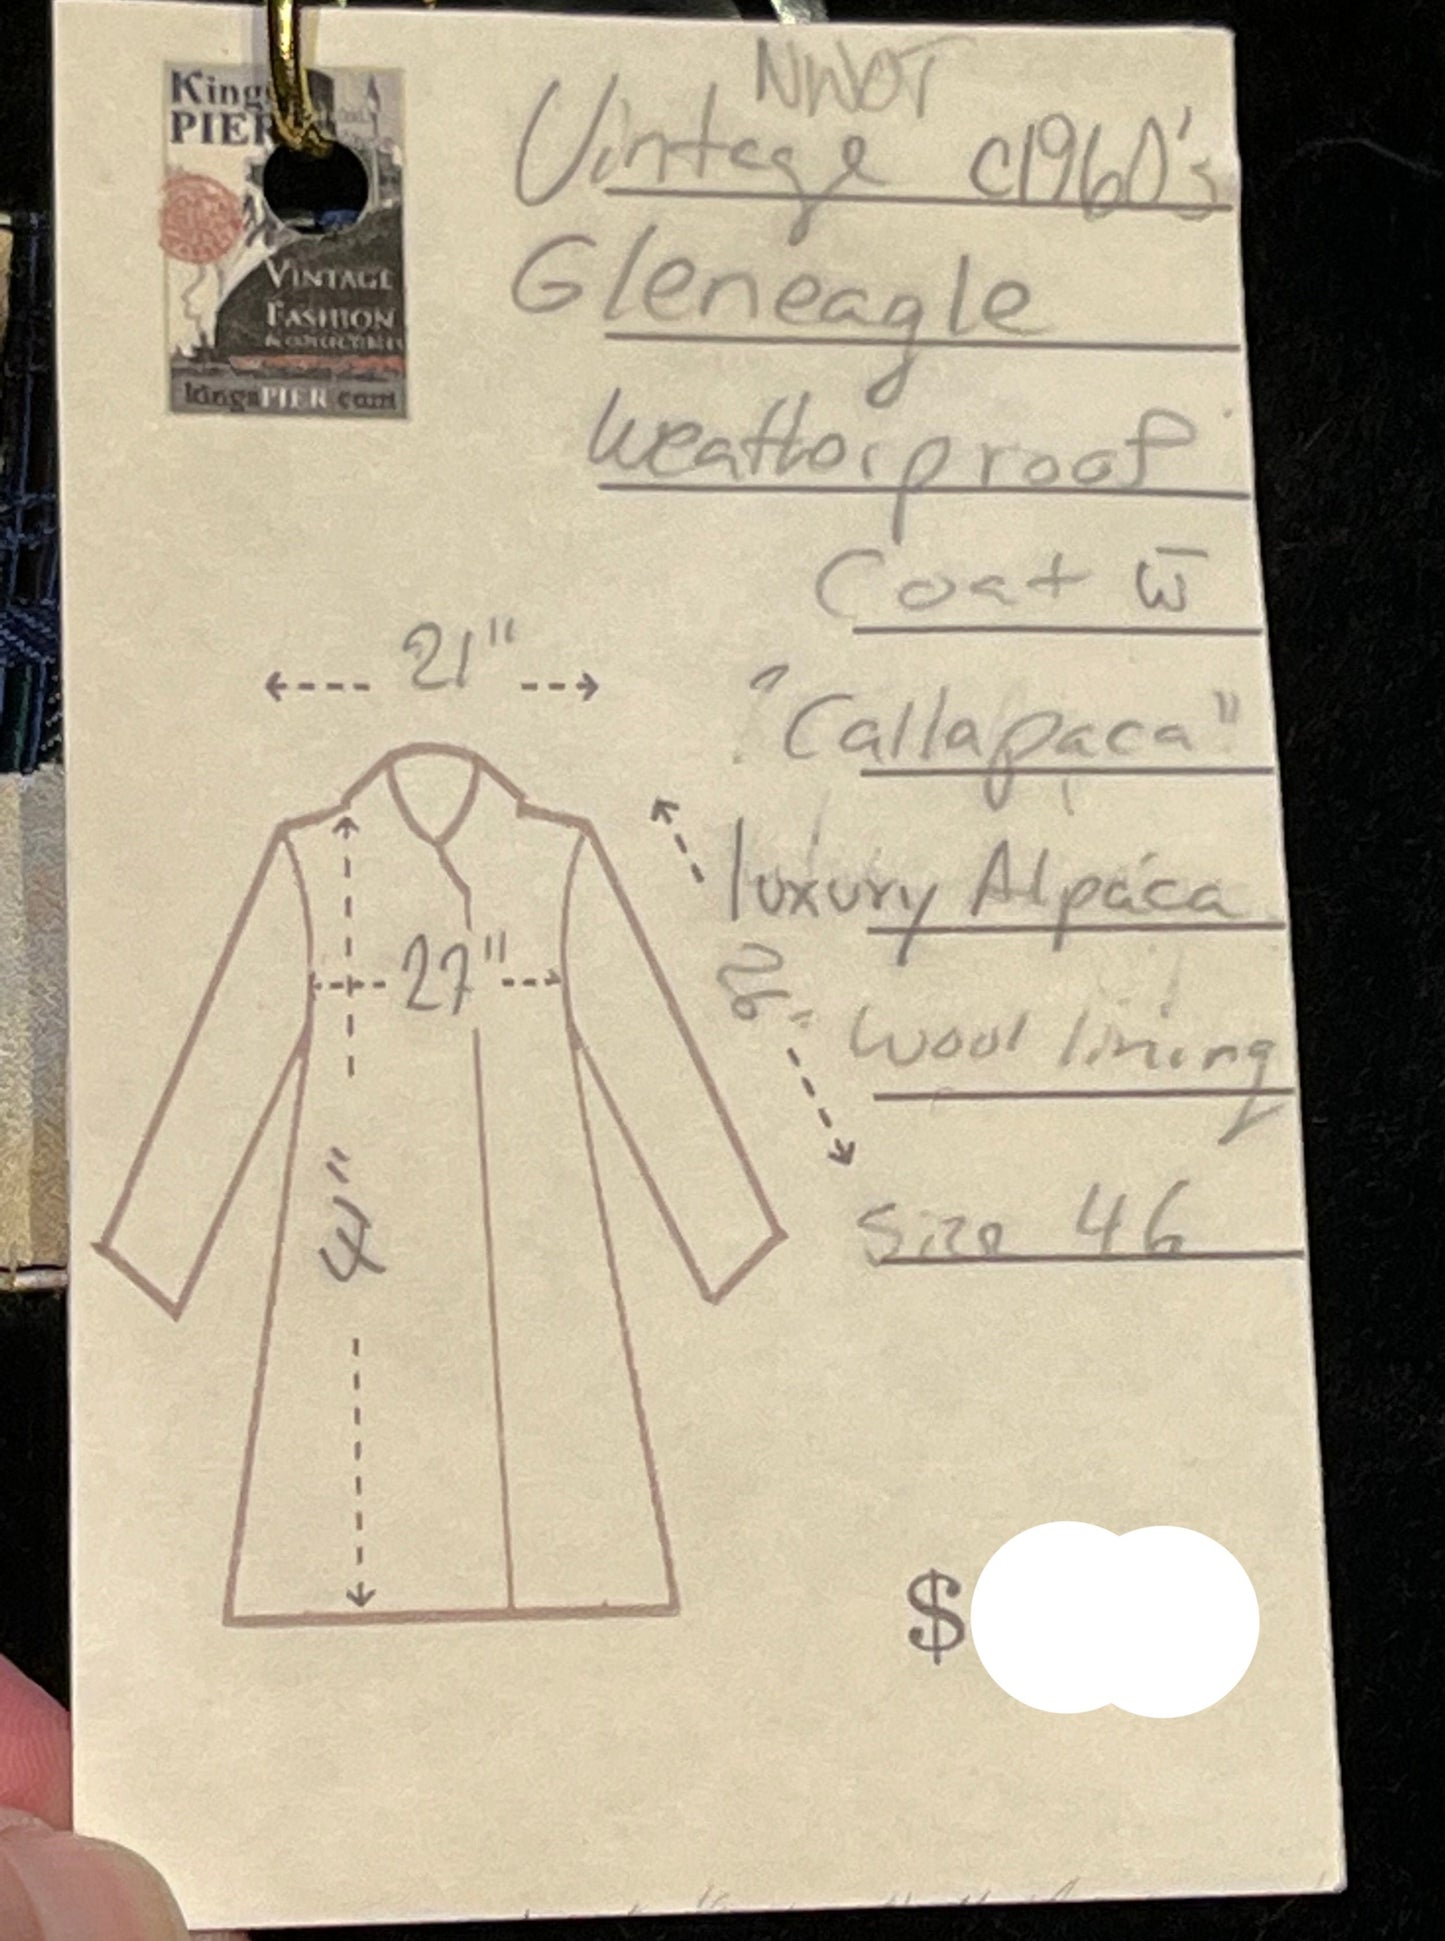 Kings
PIER
VINTAGE
FASHION
& COLLECTIBLES
kingsPIER.com
NWOT
Vintage c1960's
Gleneagle
Weatherproof
Coat w̄
"Callapaca"
luxury Alpaca
wool lining
Size 46
21"
27"
$